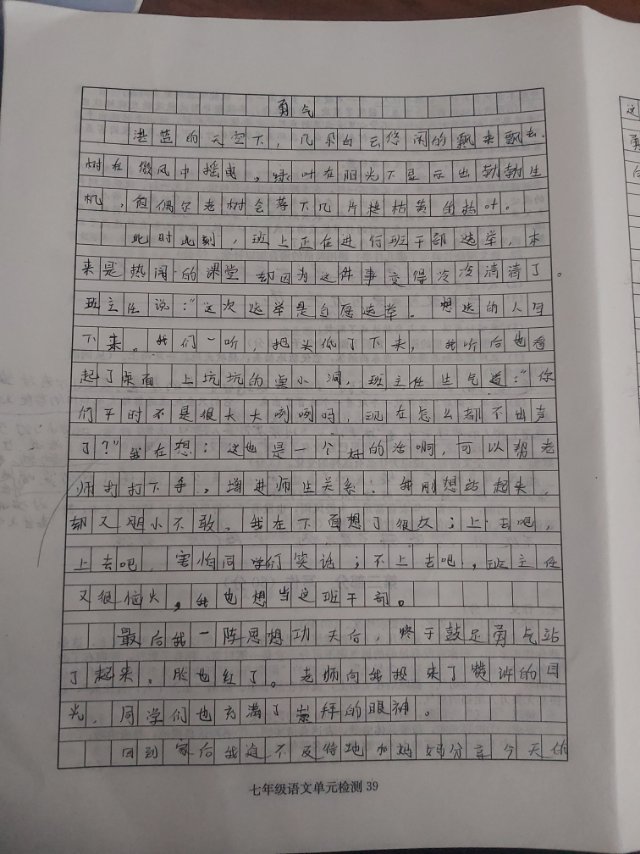 勇气
湛蓝的天空下，几朵白云悠闲的飘来飘去。
树在微风中摇曳。绿叶在阳光下显示出勃勃生
机，而偶尔老树会落下几片枯黄的叶。
此时此刻，班上正在进行班干部选举，本
来是热闹的课堂却因为这件事变得冷冷清清了。
班主任说：“这次选举是自愿选举。想选的人
下来。我们一听，把头低了下来，我听后也看
起了桌面上坑坑的桌小洞，班主任生气道：“你
们平时不是很大大咧咧吗，现在怎么都不出声
了？”我在想：这也是一个好的活啊，可以帮老
师打打下手。增进师生关系！我刚想站起来，
却又胆小不敢。我在下面想了很久；上去吧，
上去吧，害怕同学们笑话；不上去吧，班主任
又很恼火，我也想当这班干部。
最后我一阵思想功夫后，终于鼓足勇气站
了起来，脸也红了。老师向我投来了赞许的目
光，同学们也充满了崇拜的眼神。
回到家后我迫不及待地和妈妈分享今天的
七年级语文单元检测 39